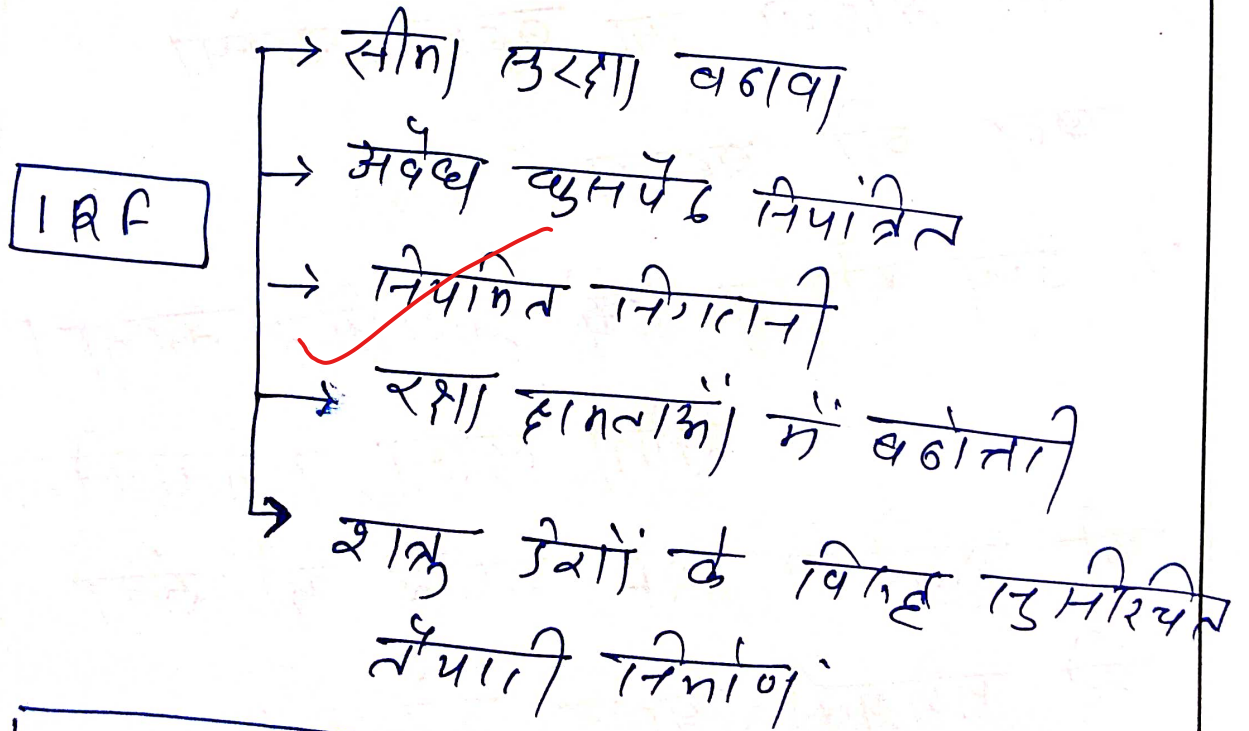 IRF
→ सीमा सुरक्षा बढावा
→ अवैध घुसपैठ नियंत्रित
→ नियमित निगरानी
→ रक्षा क्षमताओं में बढोत्तरी
→ शत्रु देशों के विरुद्ध
तैयारी निर्माण